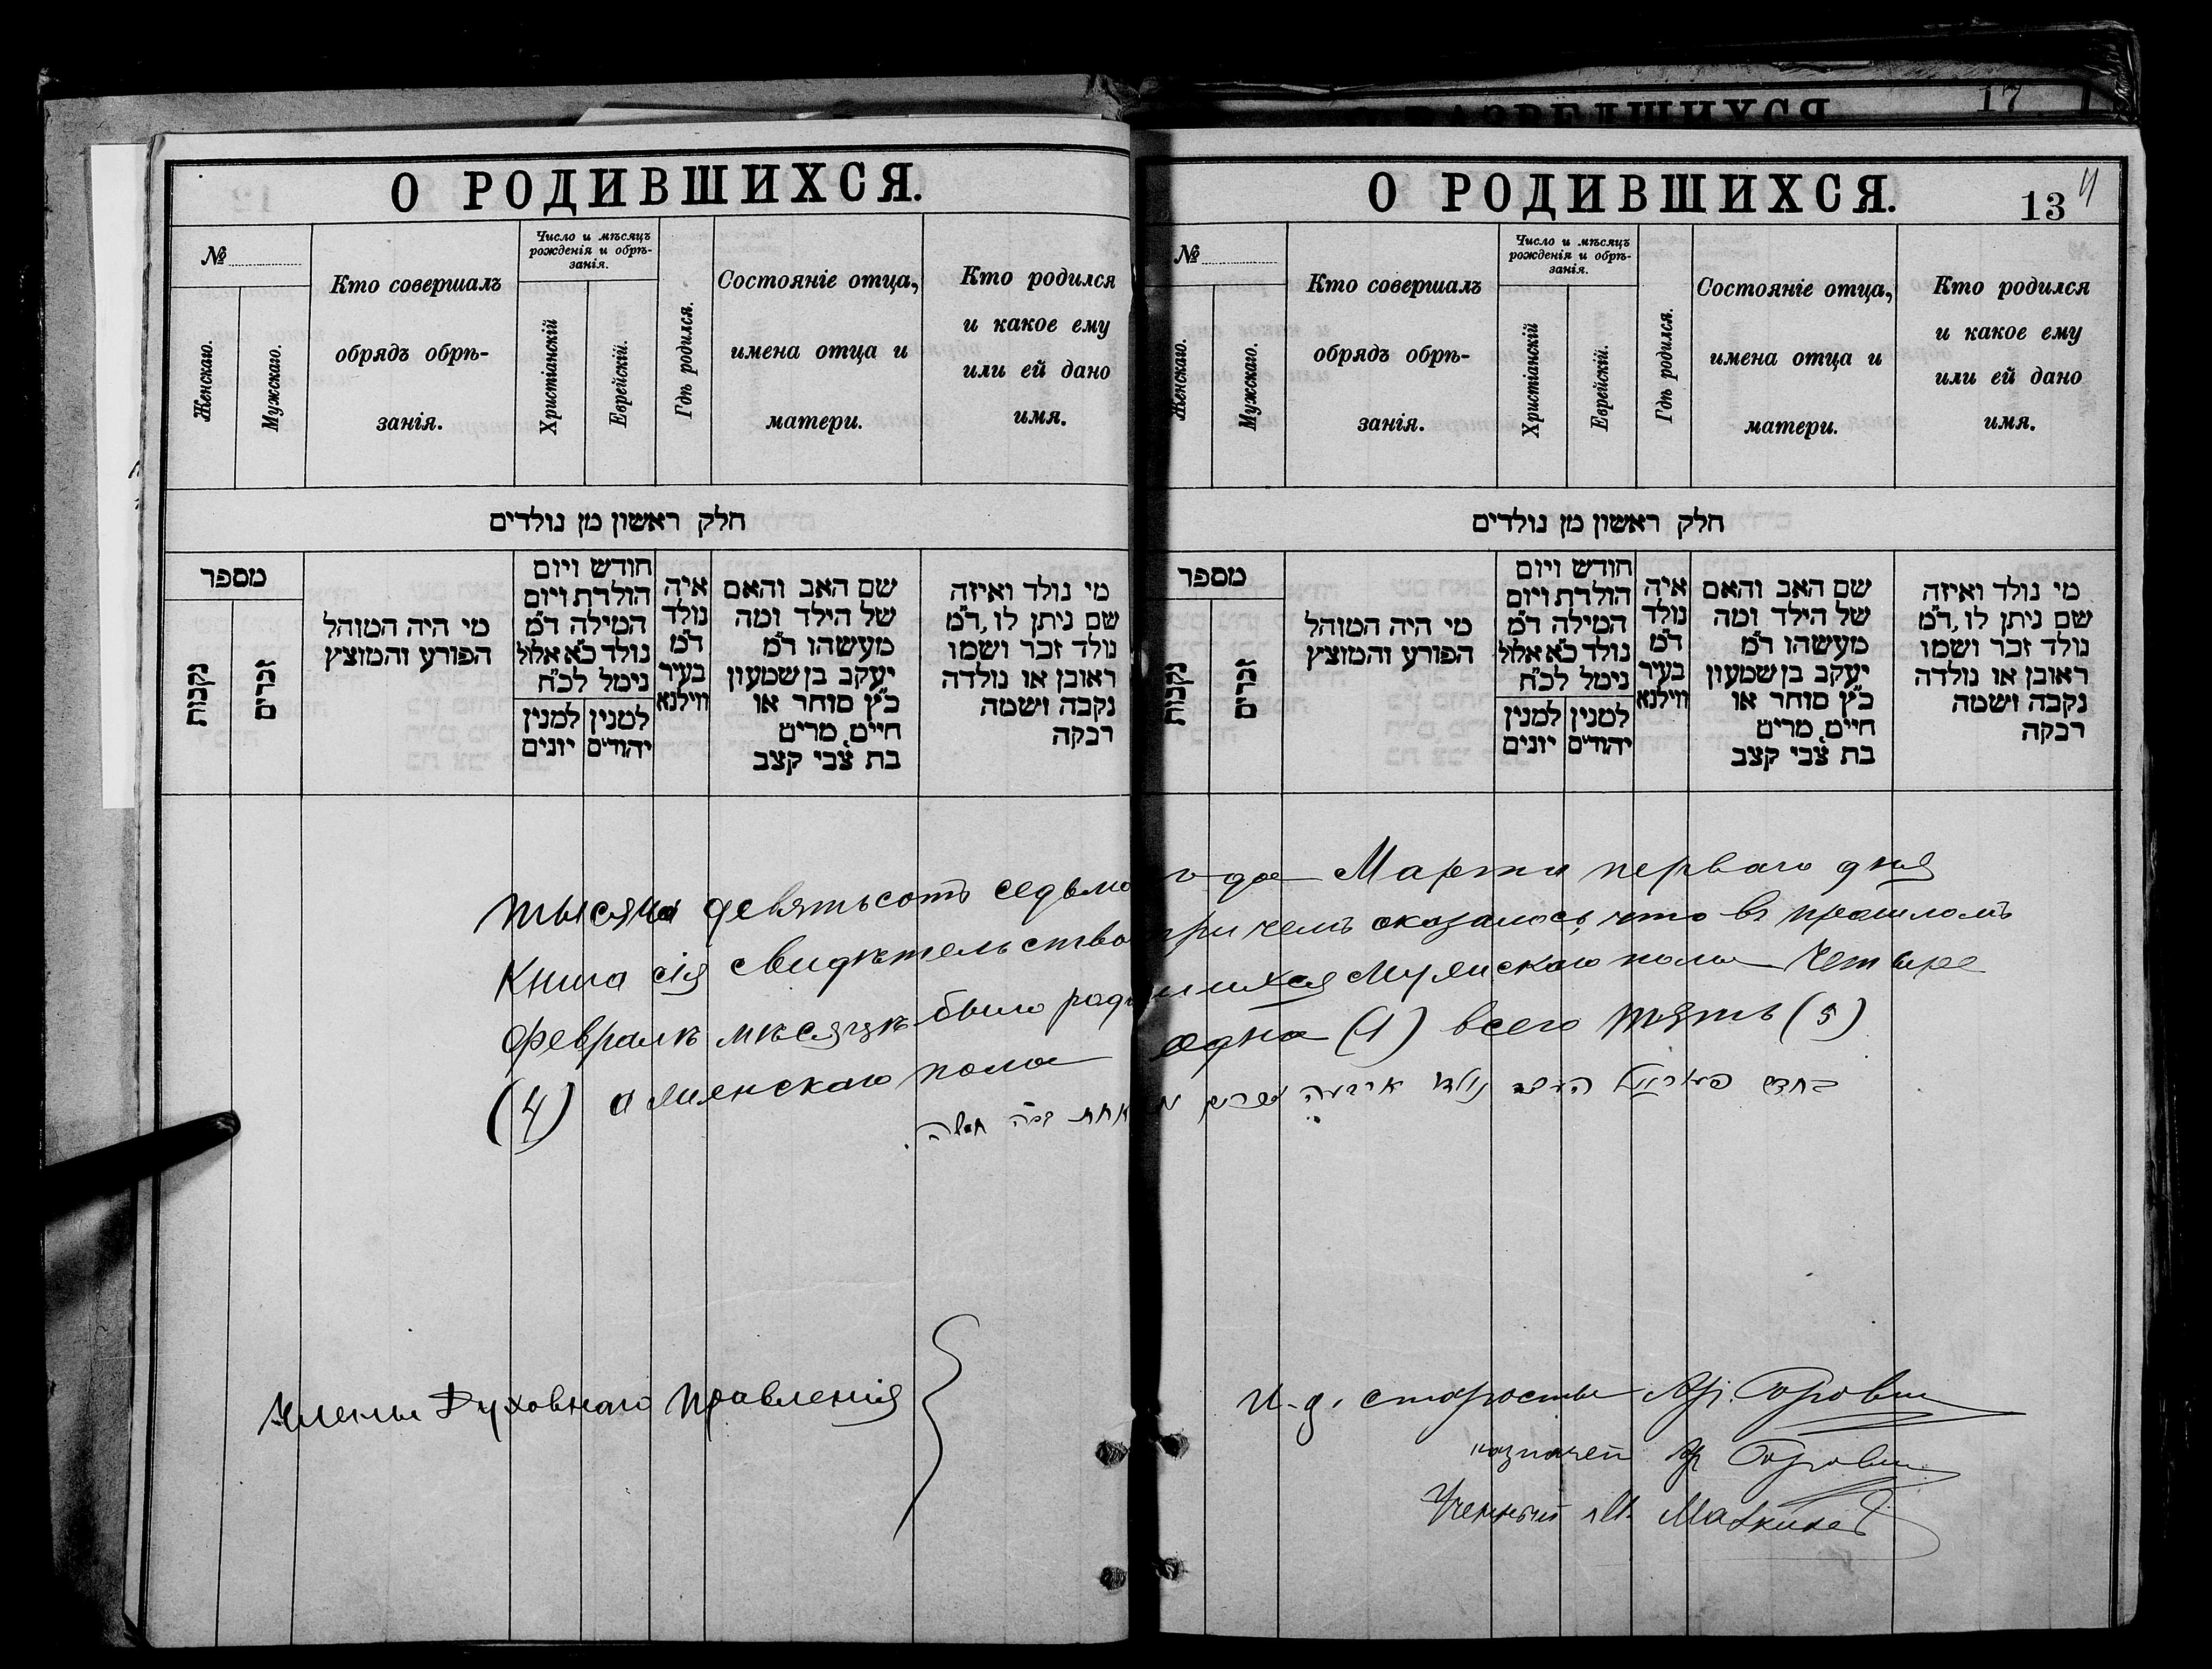 О РАЗВЕДШИХСЯ
17
О РОДИВШИХСЯ.
№
Женскаго.
Мужскаго.
Кто совершалъ
обрядъ обрѣ-
занія.
Число и мѣсяцъ
рожденія и обрѣ-
занія.
Христіанскій
Еврейскій.
Гдѣ родился.
Состояніе отца,
имена отца и
матери.
Кто родился
и какое ему
или ей дано
имя.
חלק ראשון מן נולדים
מספר
נקבות
זכרים
מי היה המוהל
הפורע והמוצץ
חודש ויום
הולדת ויום
המילה ד״מ
נולד כ״א אלול
נימל לכ״ח
למנין
יונים
למנין
יהודים
איה
נולד
ד״מ
בעיר
ווילנא
שם האב והאם
של הילד ומה
מעשהו ד״מ
יעקב בן שמעון
כ״ץ סוחר או
חיים, מרים
בת צבי קצב
מי נולד ואיזה
שם ניתן לו, ד״מ
נולד זכר ושמו
ראובן או נולדה
נקבה ושמה
רבקה
О РОДИВШИХСЯ.
13
4
№
Женскаго.
Мужскаго.
Кто совершалъ
обрядъ обрѣ-
занія.
Число и мѣсяцъ
рожденія и обрѣ-
занія.
Христіанскій
Еврейскій.
Гдѣ родился.
Состояніе отца,
имена отца и
матери.
Кто родился
и какое ему
или ей дано
имя.
חלק ראשון מן נולדים
מספר
נקבות
זכרים
מי היה המוהל
הפורע והמוצץ
חודש ויום
הולדת ויום
המילה ד״מ
נולד כ״א אלול
נימל לכ״ח
למנין
יונים
למנין
יהודים
איה
נולד
ד״מ
בעיר
ווילנא
שם האב והאם
של הילד ומה
מעשהו ד״מ
יעקב בן שמעון
כ״ץ סוחר או
חיים, מרים
בת צבי קצב
מי נולד ואיזה
שם ניתן לו, ד״מ
נולד זכר ושמו
ראובן או נולדה
נקבה ושמה
רבקה
Тысяча девятьсотъ седьмо года Марта перваго дня
Книга сія свидѣтельство при чемъ оказалось, что въ прошломъ
Февралѣ мѣсяцѣ было роди вшихся Мужскаго пола Четыре
(4) а Женскаго пола одна (1) всего Пять (5)
בחדש נולדו ארבעה זכרים
אחת
Члены Духовнаго Правленія
И. д. старосты
казначей
Ученый М.